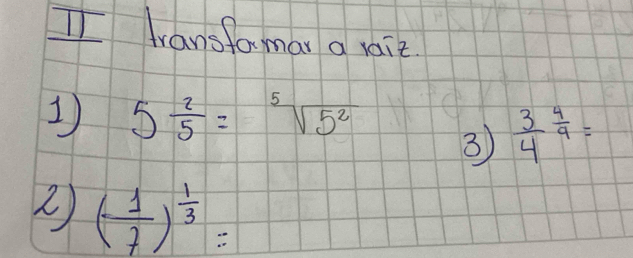 II transformar a raíz.
1) 5^(2/5) = ⁵√5²
3) 3/4^(4/9) =
2) (1/7)^(1/3) =